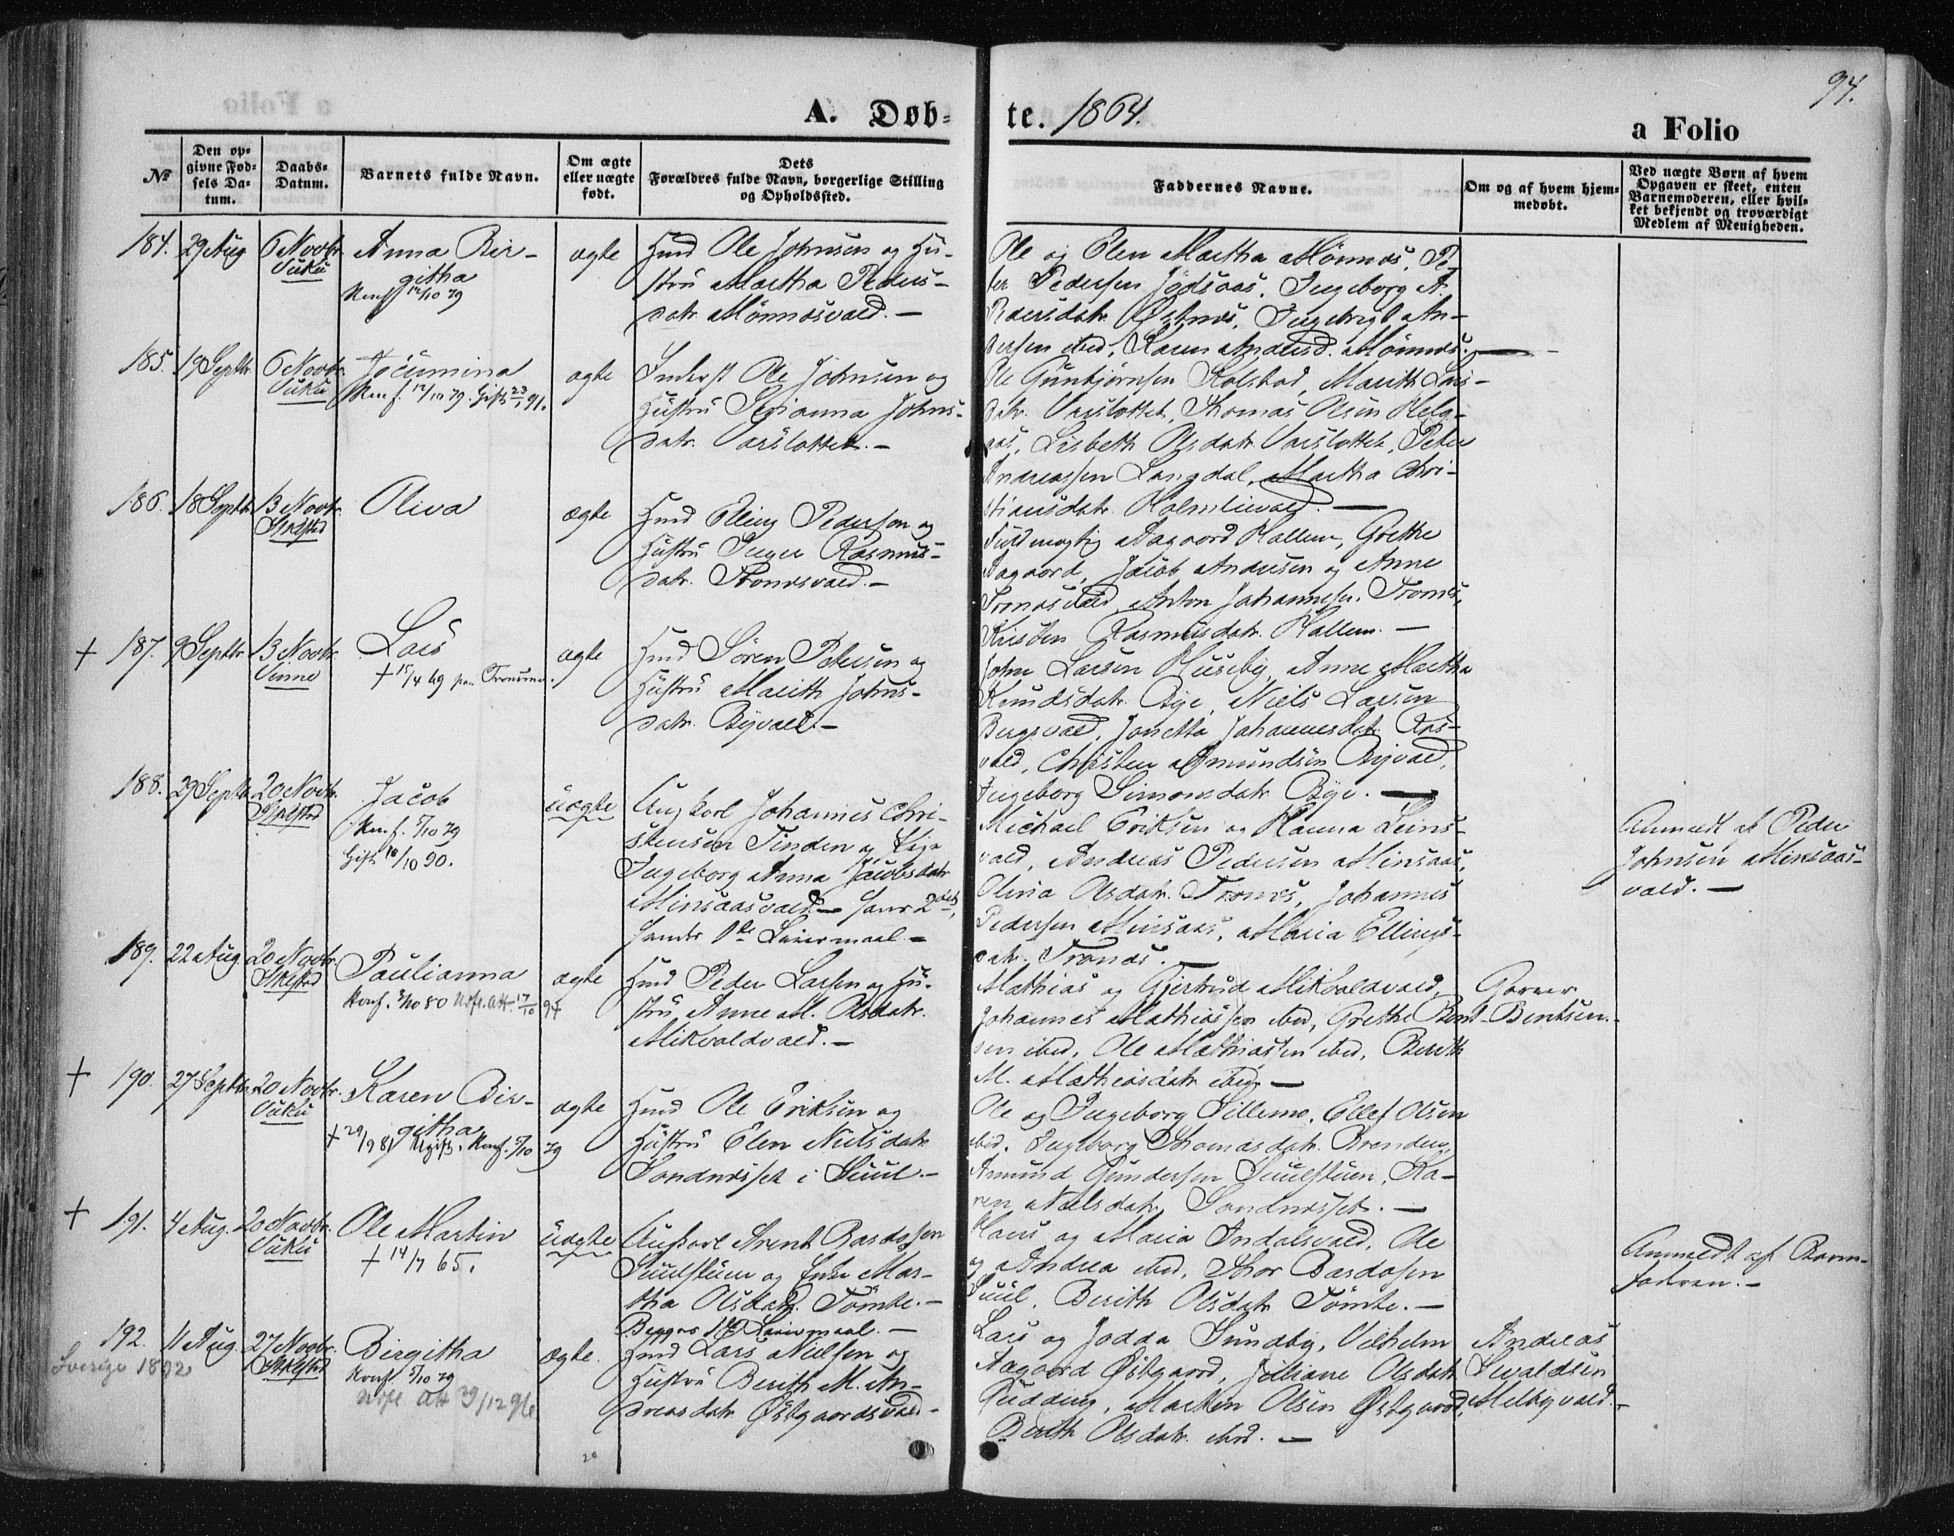 94.
A. Døb-te. 1864.
a Folio
No
Den op-
givne Fød-
sels Da-
tum.
Daabs-
Datum.
Barnets fulde Navn.
Om ægte
eller uægte
født.
Dets
Forældres fulde Navn, borgerlige Stilling
og Opholdssted.
Faddernes Navne.
Om og af hvem hjem-
medøbt.
Ved uægte Børn af hvem
Opgaven er skeet, enten
Barnemoderen, eller hvil-
ket bekjendt og troværdigt
Medlem af Menigheden.
184. 29 Aug 6 Novbr. Vuku
Anna Bir-
githa
Konf. 12/10 79
ægte
Husmd Ole Johnsen og Hu-
stru Martha Peders-
datr. Mønnæsvald. —
Ole og Elen Martha Mønnæs, Pe-
ter Pedersen Jødsaas, Ingeborg A.
Raersdatr. Østnæs, Ingebrigt An-
dersen ibid, Karen Andersd. Mønnæs. —
185. 19 Septbr. 6 Novbr. Vuku
Jocumina
Konf. 12/10 79. Gift 23/1 91.
ægte
Inderst Ole Johnsen og
Hustru Serianna Johns-
datr. Varslottet. —
Ole Gunbjørnsen Kolstad, Marith Lars-
datr. Varslottet, Thomas Olsen Helg-
aas, Lisbeth Olsdatr. Varslottet, Peter
Andreassen Langdal, Martha Chri-
stiansdatr. Holmlivald. —
186. 18 Septbr. 13 Novbr. Skestad
Oliva
ægte
Husmd Elling Pedersen og
Hustru Inger Rasmus-
datr. Tronæsvald. —
Fuldmægtig Aagaard Hallem, Grethe
Aagaard, Jacob Andersen og Anne
Tronæsvald, Anton Johannesen Tronæs,
Kristen Rasmusdatr. Hallem. —
+ 187. 9 Septbr. 13 Novbr. Vinne
Lars
+ 15/4 69 paa Tronæs.
ægte
Husmd Søren Petersen og
Hustru Marith Johns-
datr. Byvald. —
John Larsen Huseby, Anne Martha
Knudsdatr. Bye, Niels Larsen
Bergsvald, Jonetta Johannesdatr. Ros-
vald, Christen Amundsen Byvald,
Ingeborg Simonsdatr. Bye. —
188. 29 Septbr. 20 Novbr. Skestad
Jacob
Konf. 5/10 79
Gift 10/10 90.
uægte
Ungkarl Johannes Chri-
stensen Tinden og Pige
Ingeborg Anna Jacobsdatr.
Minsaasvald. — Hans 2det,
hendes 1te Leiermaal. —
Michael Eriksen og Hanna Leins-
vald, Andreas Pedersen Minsaas,
Olina Olsdatr. Tronæs, Johannes
Pedersen Minsaas, Maria Ellings-
datr. Tronæs. —
Anmeldt af Peder
Johnsen Minsaas-
vald. —
189. 22 Aug. 20 Novbr. Skestad
Paulianna
Konf. 3/10 80 Utfl. Att. 17/10 94
ægte
Husmd Peder Larsen og Hu-
stru Anne M. Olsdatr.
Mikvoldvald. —
Mathias og Gjertrud Mikvoldvald,
Johannes Mathiassen ibid, Grethe Bent-
sen ibid, Ole Mathiassen ibid, Berith
M. Mathiasdatr. ibid. —
Garver
Bentsen.
+ 190. 27 Septbr. 20 Novbr. Vuku
Karen Bir-
githa
+ 29/9 81 Ugift. Konf. 5/10 79
ægte
Husmd Ole Eriksen og
Hustru Elen Nielsdatr.
Sandnæsset i Suul. —
Ole og Ingeborg Sillermo, Ellef Olsen
ibid, Ingeborg Thomasdatr. Brenden,
Amund Gundersen Suulstuen, Ka-
ren Nielsdatr. Sandnæsset. —
+ 191. 4 Aug. 20 Novbr. Vuku
Ole Martin
+ 14/7 65.
uægte
Ungkarl Arent Bardosen
Suulstuen og Enke Mar-
tha Olsdatr. Tømte. —
Begges 1te Leiermaal. —
Hans og Maria Indalsvald, Ole
og Andrea ibid, Thor Bardosen
Suul, Berith Olsdatr. Tømte. —
Anmeldt af Barne-
faderen. —
192. 11 Aug. 27 Novbr. Skestad
Sverige 1892
Birgitha
Konf. 5/10 79
Utfl. Att 29/12 96
ægte.
Husmd Lars Nielsen og
Hustru Berith M. An-
dreasdatr. Østgaardsvald. —
Lars og Jodda Sundby, Vilhelm
Aagaard Østgaard, Juliane Olsdatr.
Rudding, Morten Olsen Østgaard,
Berith Olsdatr. ibid. —
Andreas
Sevaldsen
Melbyvald. —